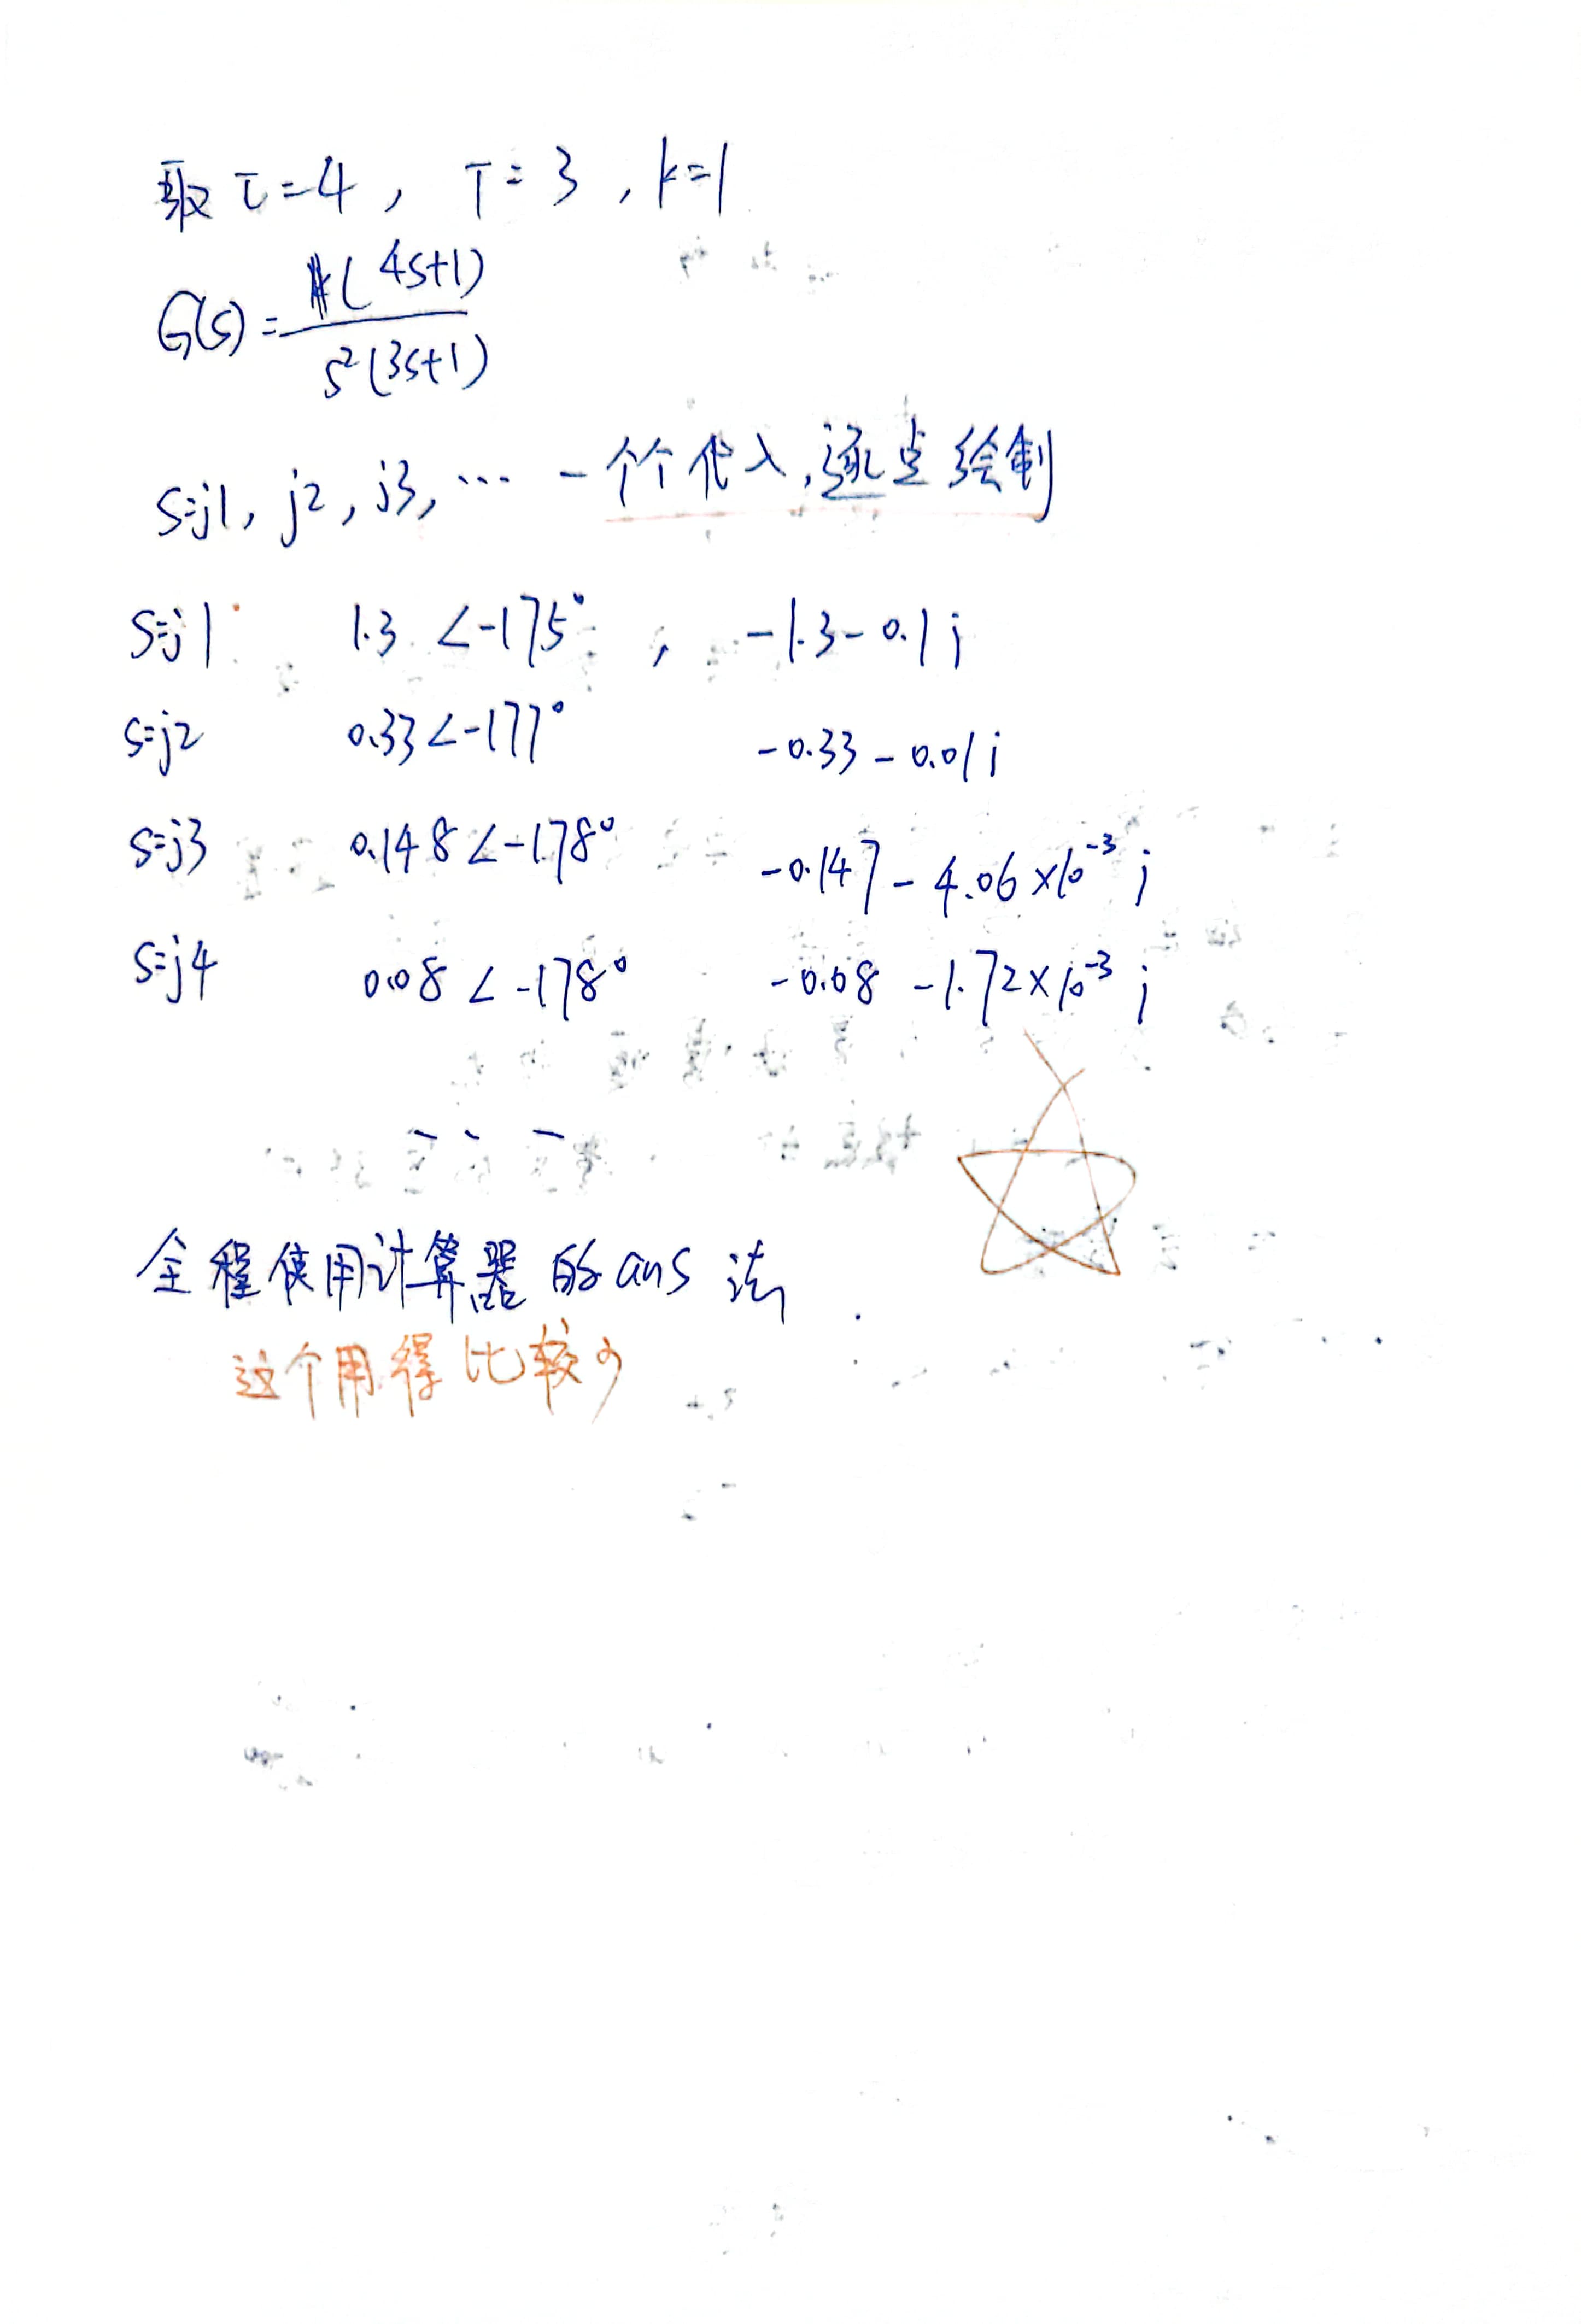 取 τ=4, T=3, k=1
G(s)=
(4s+1)
s²(3s+1)
s=j1, j2, j3, … 一个个代入,逐点绘制
s=j1 1.3 ∠-175° , -1.3-0.1j
s=j2 0.33∠-177° -0.33-0.01j
s=j3 0.148∠-178° -0.147-4.06×10⁻³j
s=j4 0.08∠-178° -0.08-1.72×10⁻³j
全程使用计算器的ans法
这个用得比较少